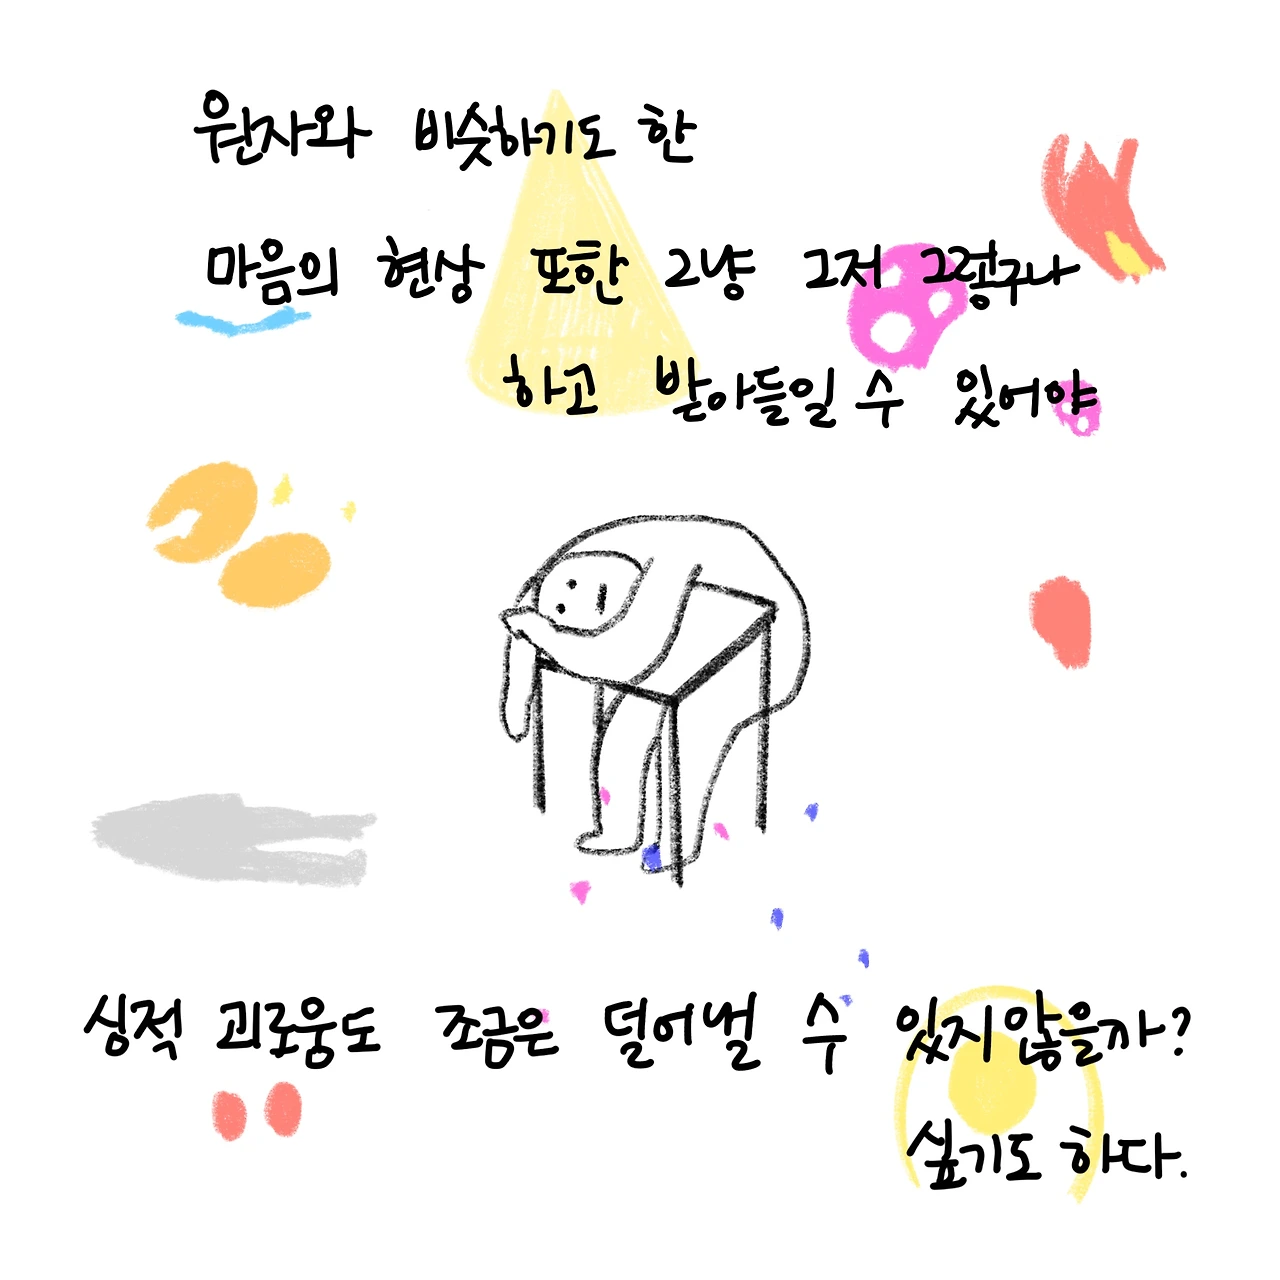 원자와 비슷하기도 한
마음의 현상 또한 그냥 그저 그렇구나
하고 받아들일 수 있어야
심적 괴로움도 조금은 덜어낼 수 있지않을까?
싶기도 하다.